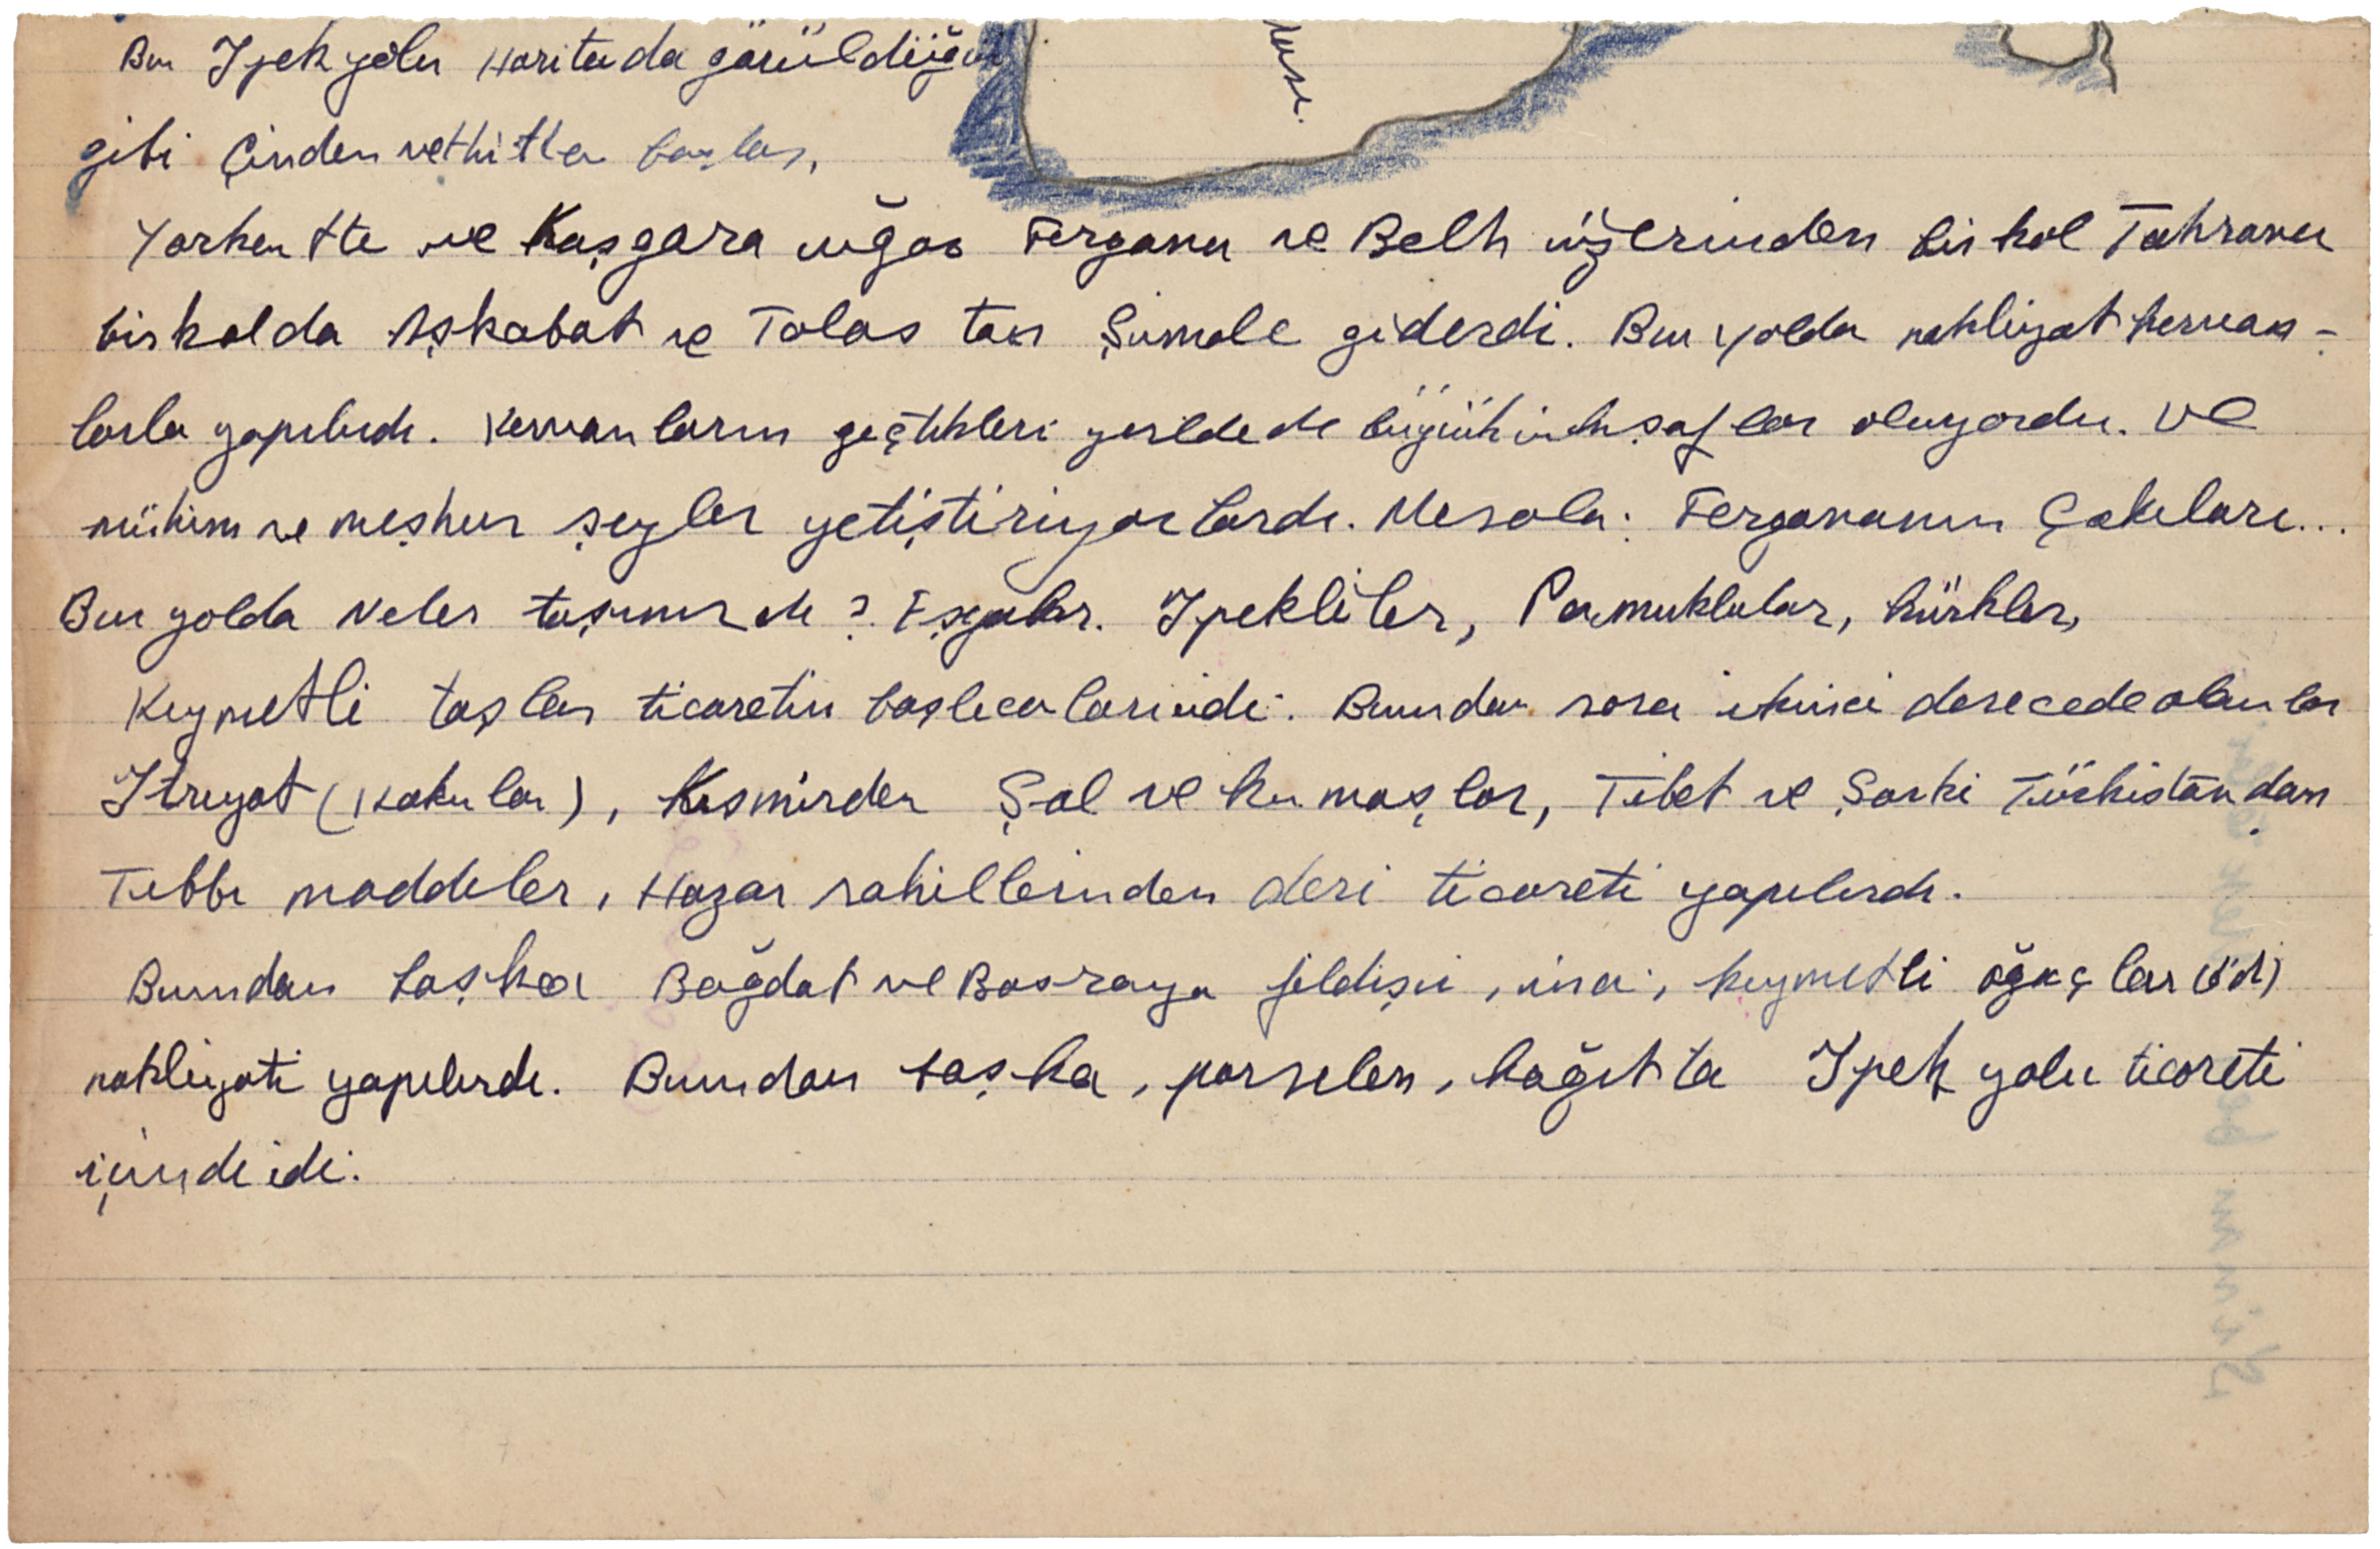 Bu Ipek yolu Haritada görüldüğü
gibi Çinden ve Hitta başlar,
Yarkentte ve Kaşgara uğar Fergana ve Belh üzerinden bir kol Tahrana
bir kolda Aşkabat ve Talas tan Şimale giderdi. Bu yolda nakliyat kervan-
larla yapılırdı. Kervanların geçtikleri yerldede büyük inkişaflar oluyordu. ve
mühim ve meşhur şeyler yetiştiriyorlardı. Mesala: Fergananın Çakıları...
Bu yolda Neler taşınırdı? Eşyalar. Ipekliler, Pamuklular, kürkler,
Kıymetli taşlar ticaretin başlıcalarındı. Bundan sora ikinci derecede olanlar
Itriyat (Kokular), Kışmirden Şal ve kumaşlar, Tibet ve Şarki Türkistandan
Tıbbı maddeler, Hazar sahillerinden deri ticareti yapılırdı.
Bundan başka Bağdat ve Basraya fildişi, kıymetli ağaçlar (öd)
nakliyati yapılırdı. Bundan başka, porselen, kağıt ta Ipek yolu ticareti
içinde idi.